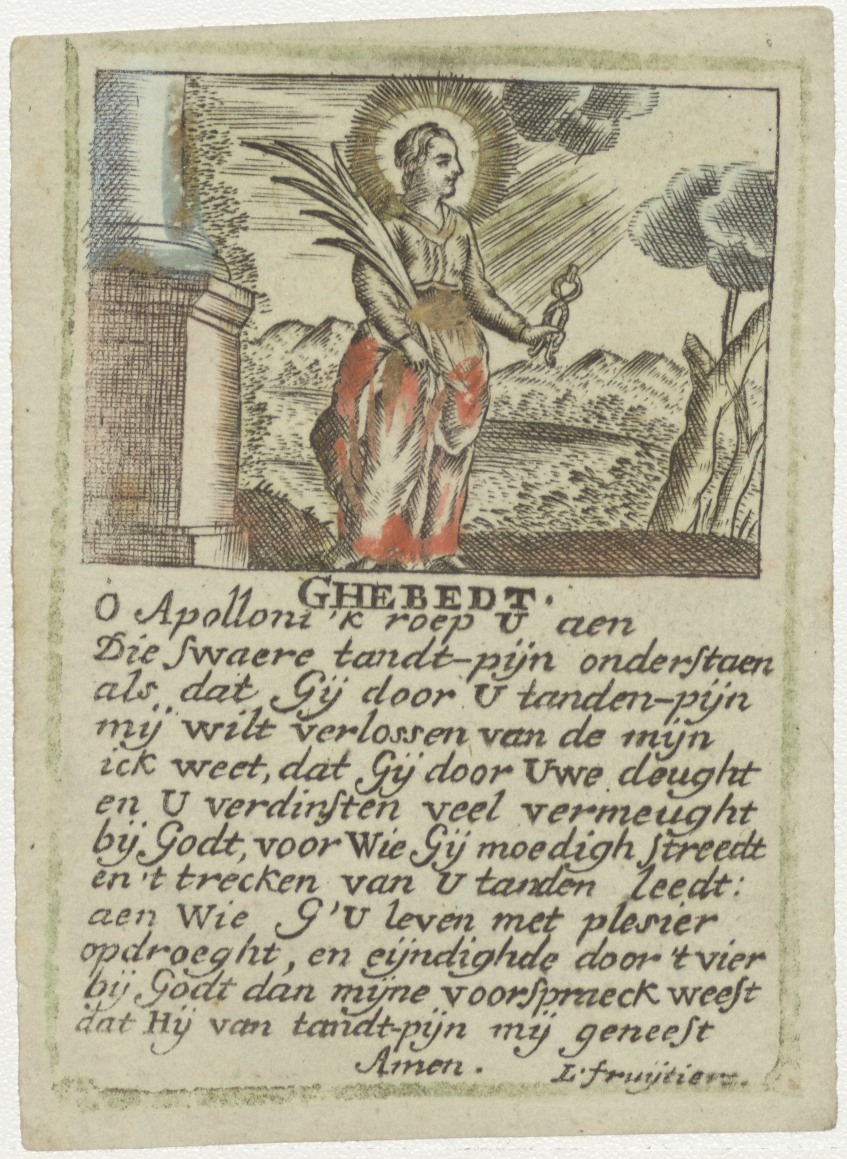 GHEBEDT.
O Apolloni 'k roep U aen
Die swaere tandt-pijn onderstaen
als dat Gij door U tanden-pijn
mij wilt verlossen van de mijn
ick weet, dat Gij door Uwe deught
en U verdinsten veel vermeught
bij Godt, voor Wie Gij moedigh streedt
en 't trecken van U tanden leedt:
aen Wie G'U leven met plesier
opdroeght, en eijndighde door 't vier
bij Godt dan mijne voorspraeck weest
dat Hij van tandt-pijn mij geneest
Amen.
L. fruijtiers.